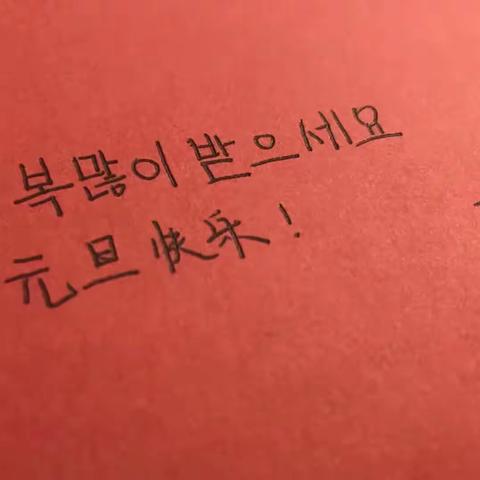 복많이 받으세요
元旦快乐!